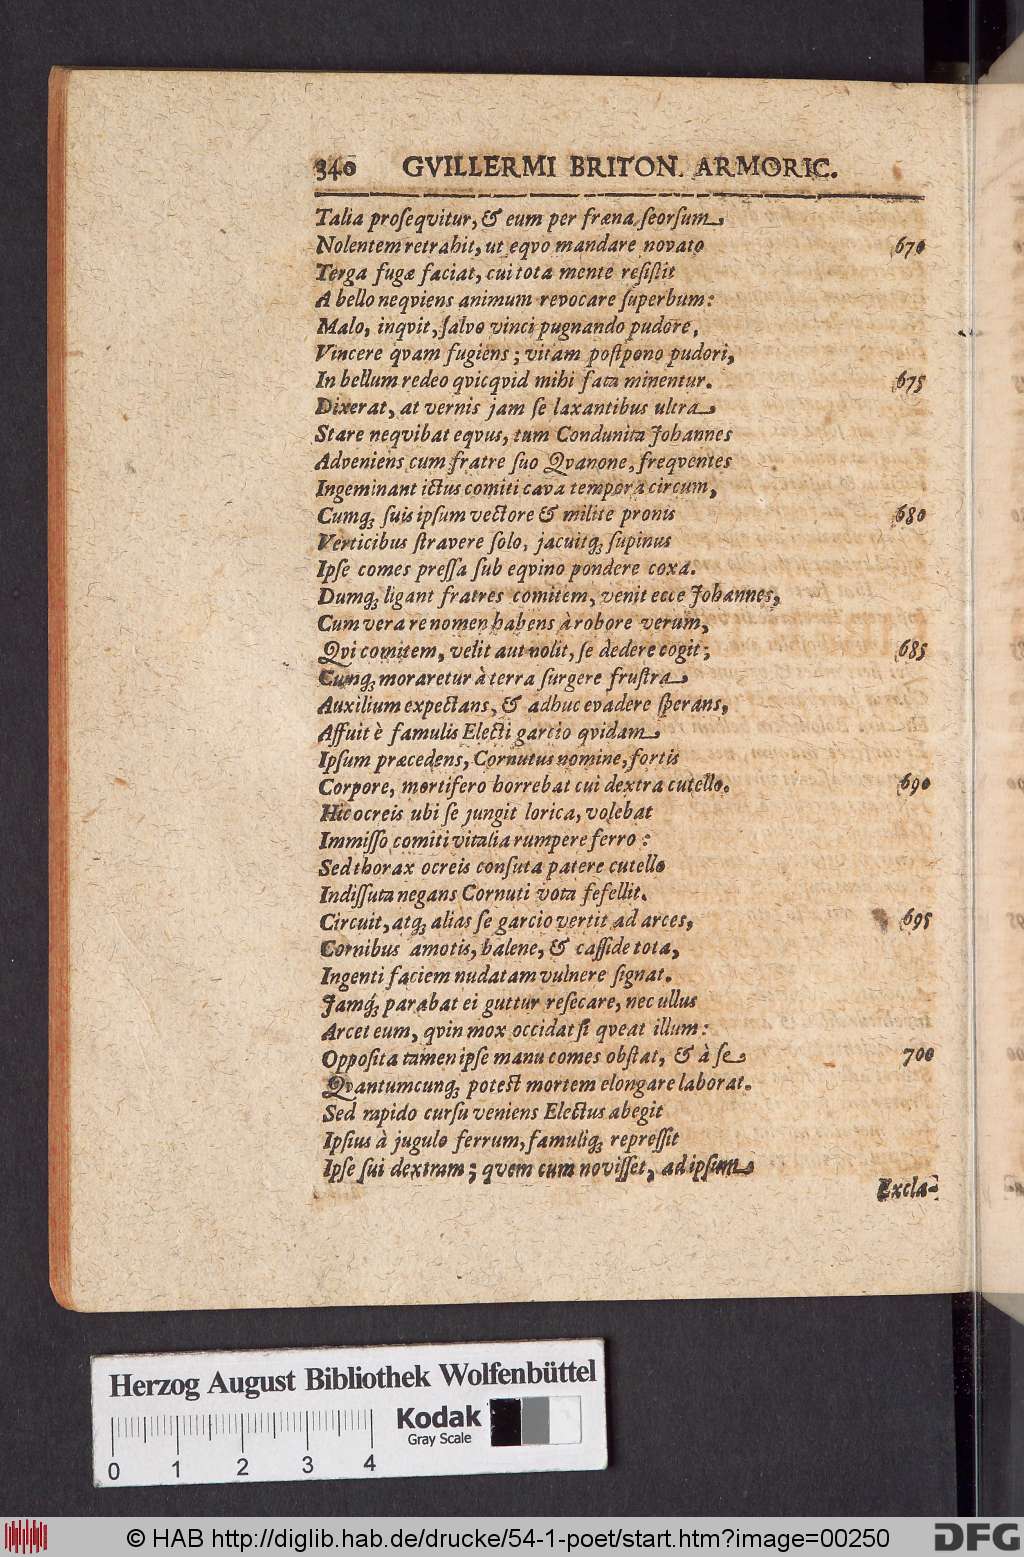 340 GVILLERMI BRITON. ARMORIC.
Talia proseqvitur, & eum per fræna seorsum
Nolentem retrahit, ut eqvo mandare novato 670
Terga fugæ faciat, cui tota mente resistit
A bello neqviens animum revocare superbum:
Malo, inqvit, salvo vinci pugnando pudore,
Vincere qvam fugiens; vitam postpono pudori,
In bellum redeo qvicqvid mihi fata minentur. 675
Dixerat, at vernis jam se laxantibus ultra
Stare neqvibat eqvus, tum Condunita Johannes
Adveniens cum fratre suo Qvanone, freqventes
Ingeminant ictus comiti cava tempora circum,
Cumq; suis ipsum vectore & milite pronis 680
Verticibus stravere solo, jacuitq; supinus
Ipse comes pressa sub eqvino pondere coxa.
Dumq; ligant fratres comitem, venit ecce Johannes,
Cum vera re nomen habens à robore verum,
Qvi comitem, velit aut nolit, se dedere cogit; 685
Cumq; moraretur à terra surgere frustra
Auxilium expectans, & adhuc evadere sperans,
Affuit è famulis Electi garcio qvidam
Ipsum præcedens, Cornutus nomine, fortis
Corpore, mortifero horrebat cui dextra cutello. 690
Hic ocreis ubi se jungit lorica, volebat
Immisso comiti vitalia rumpere ferro:
Sed thorax ocreis consuta patere cutello
Indissuta negans Cornuti vota fefellit.
Circuit, atq; alias se garcio vertit ad arces, 695
Cornibus amotis, balene, & casside tota,
Ingenti faciem nudatam vulnere signat.
Jamq́; parabat ei guttur resecare, nec ullus
Arcet eum, qvin mox occidat si qveat illum:
Opposita tamen ipse manu comes obstat, & à se 700
Qvantumcunq; potest mortem elongare laborat.
Sed rapido cursu veniens Electus abegit
Ipsius à jugulo ferrum, famuliq; repressit
Ipse sui dextram; qvem cum novisset, ad ipsum
Excla-
Herzog August Bibliothek Wolfenbüttel
Kodak
Gray Scale
0 1 2 3 4
© HAB http://diglib.hab.de/drucke/54-1-poet/start.htm?image=00250
DFG